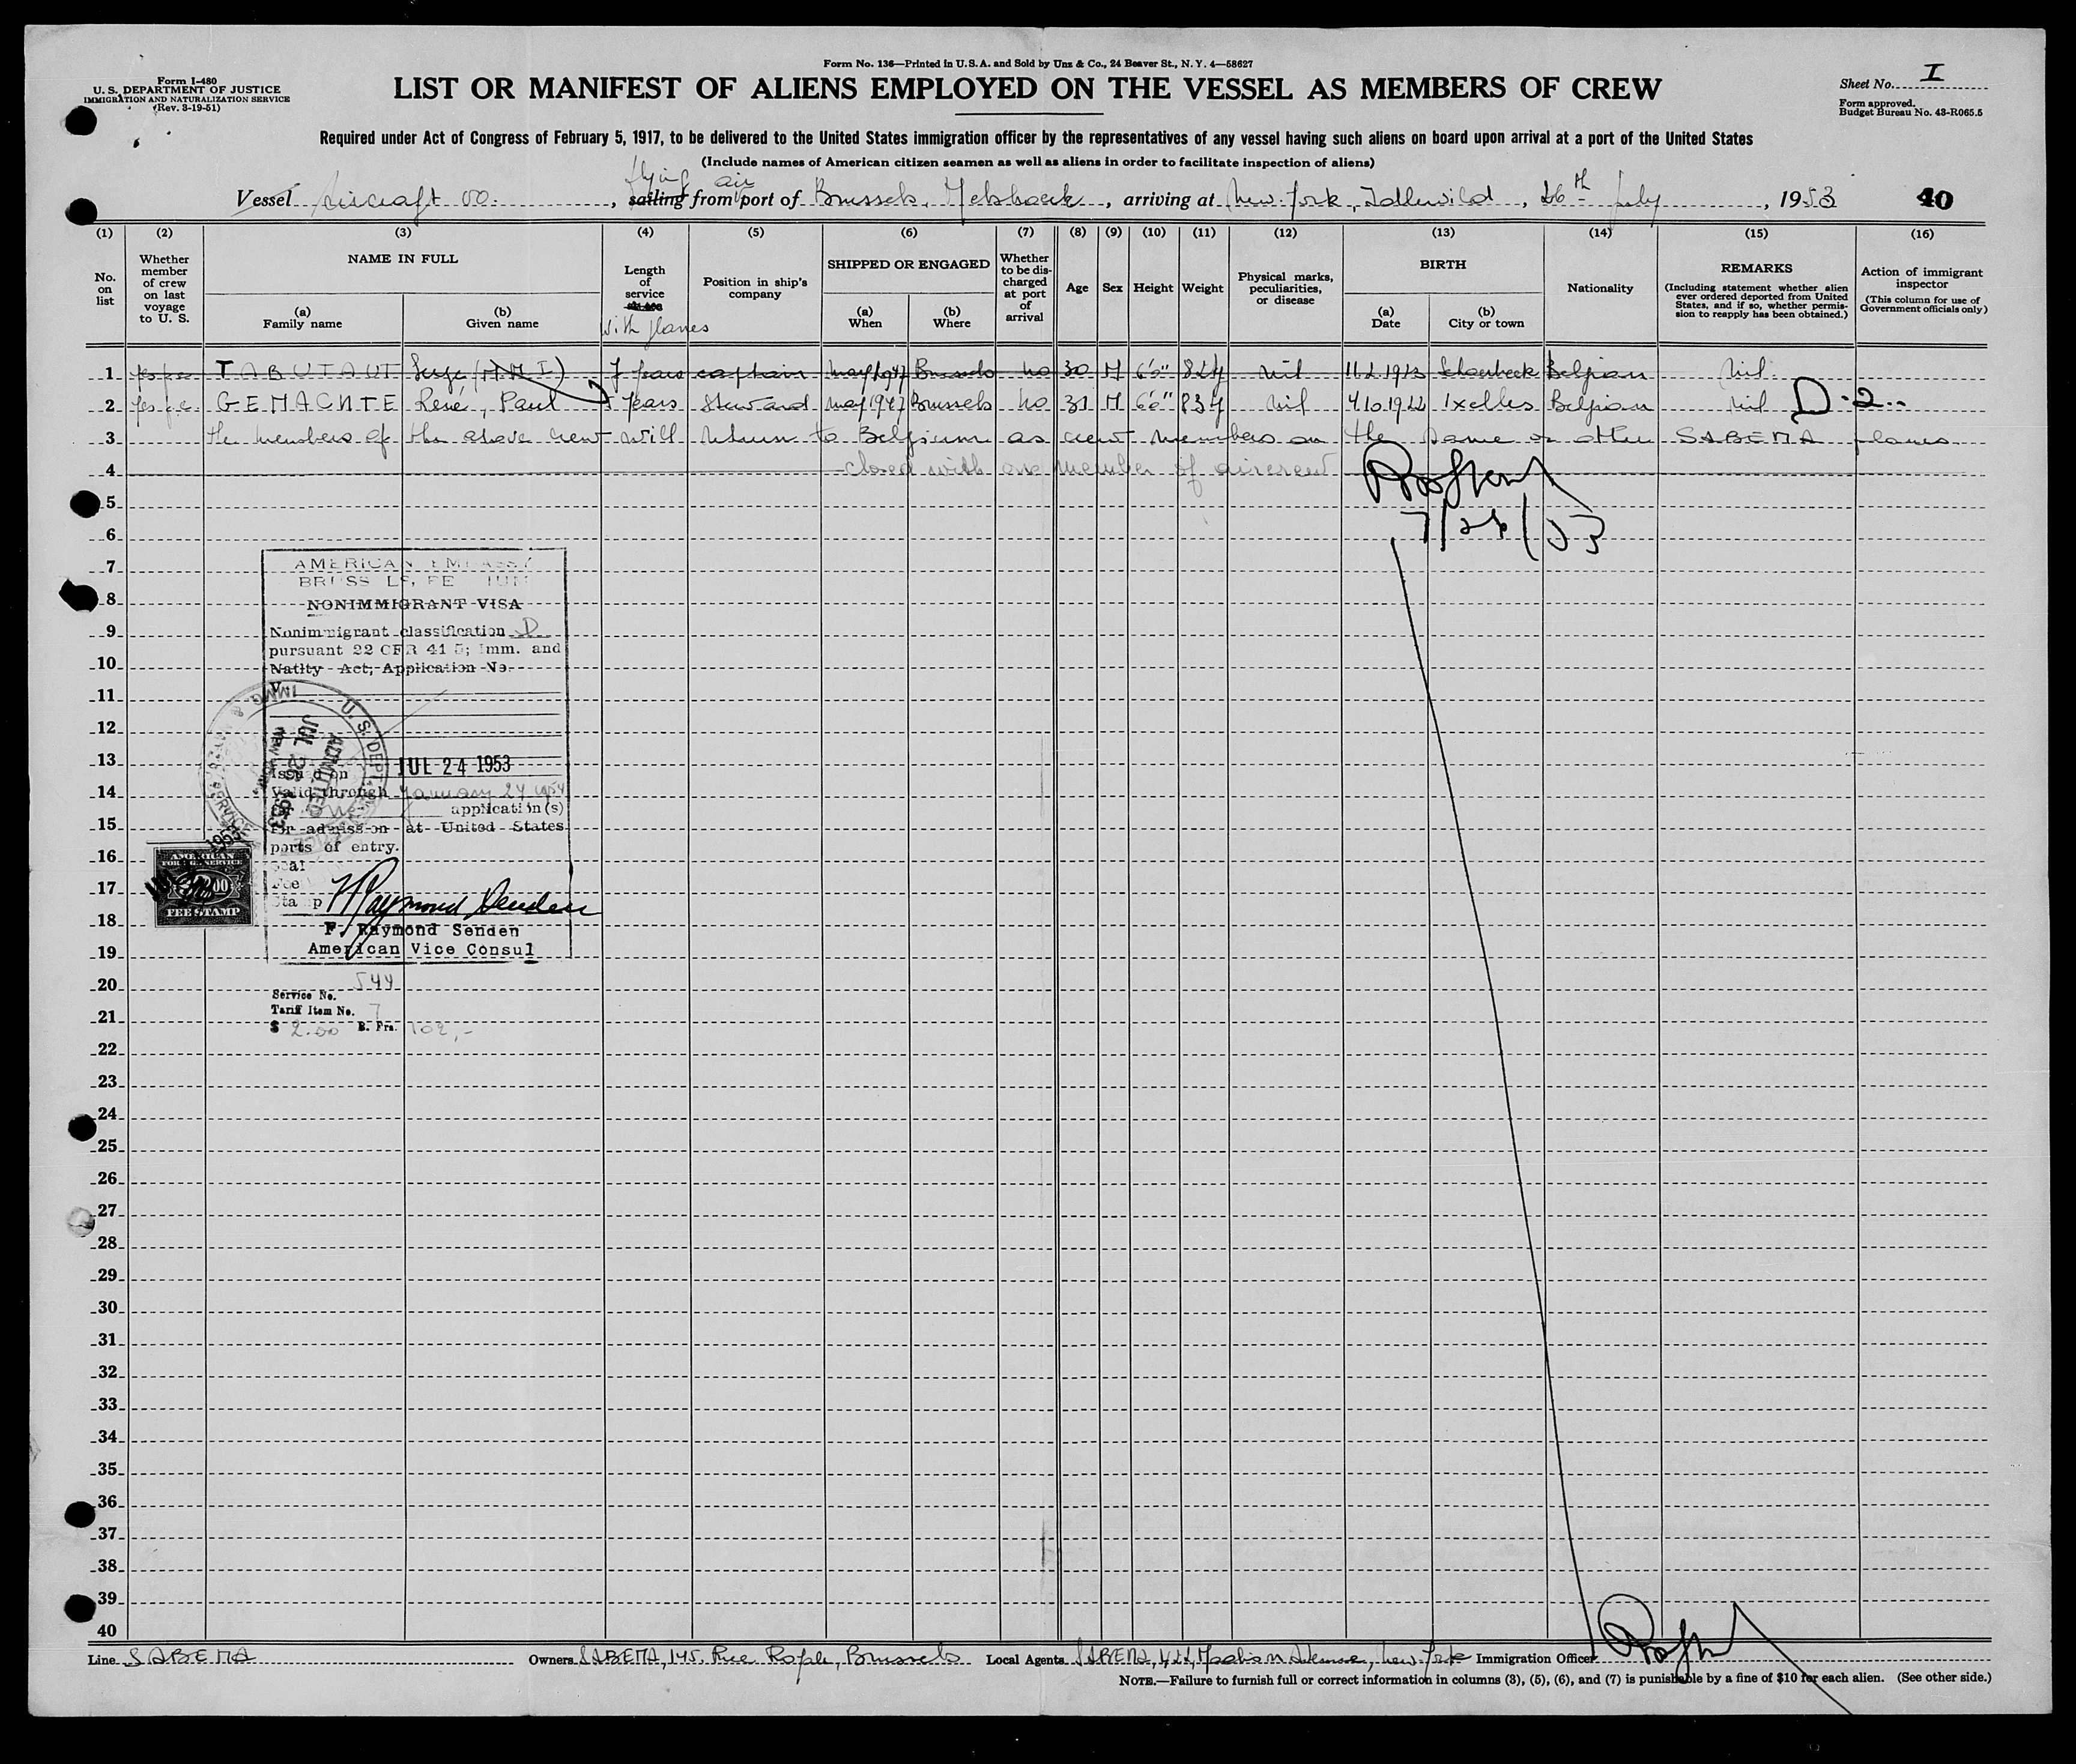 Form I-480
U. S. DEPARTMENT OF JUSTICE
IMMIGRATION AND NATURALIZATION SERVICE
(Rev. 3-19-51)
Form No. 136—Printed in U.S.A. and Sold by Unz & Co., 24 Beaver St., N. Y. 4—58627
LIST OR MANIFEST OF ALIENS EMPLOYED ON THE VESSEL AS MEMBERS OF CREW
Sheet No. I
Form approved.
Budget Bureau No. 43-R065.5
Required under Act of Congress of February 5, 1917, to be delivered to the United States immigration officer by the representatives of any vessel having such aliens on board upon arrival at a port of the United States
(Include names of American citizen seamen as well as aliens in order to facilitate inspection of aliens)
flying air
Vessel Aircraft OO. , sailing from port of Brussels, Melsbroek , arriving at New York, Idlewild , 26th July , 1953 40
(1) (2) (3) (4) (5) (6) (7) (8) (9) (10) (11) (12) (13) (14) (15) (16)
No. on list
Whether member of crew on last voyage to U. S.
NAME IN FULL
(a) Family name
(b) Given name
Length of service at sea
with planes
Position in ship's company
SHIPPED OR ENGAGED
(a) When
(b) Where
Whether to be discharged at port of arrival
Age
Sex
Height
Weight
Physical marks, peculiarities, or disease
BIRTH
(a) Date
(b) City or town
Nationality
REMARKS
(Including statement whether alien ever ordered deported from United States, and if so, whether permission to reapply has been obtained.)
Action of immigrant inspector
(This column for use of Government officials only)
1 TABUTAUT Serge (N.M.I) 7 years captain may 1947 Brussels no 30 M 6'0" 82 11.2.1923 Schaerbeek Belgian nil
2 GEMACHTE René, Paul years Steward may 1947 Brussels no 31 M 6'0" 83 nil 4.10.1922 Ixelles Belgian nil D-2
3 the members of the above crew will return to Belgium as crew members on the same or other SABENA planes
4 closed with one member of aircrew
5
7/26/53
6
7
AMERICAN EMBASSY
BRUSSELS, BELGIUM
8
NONIMMIGRANT VISA
9
Nonimmigrant classification D
pursuant 22 CFR 41 5; Imm. and
10
Natlty Act; Application No.
V
11
12
U. S. DEPT.
ADMITTED
JUL 26 1953
NEW YORK
IMMIG. & NATZ. SERVICE
13
Issued on JUL 24 1953
14
Valid through January 24 1954
application(s)
15
for admission at United States
ports of entry.
16
Seal
17
Fee
Stamp
AMERICAN
FOREIGN SERVICE
FEE STAMP
18
F. Raymond Senden
19
American Vice Consul
20
Service No. 544
21
Tariff Item No. 7
$ 2.00 B. Frs. 102,-
22
23
24
25
26
27
28
29
30
31
32
33
34
35
36
37
38
39
40
Line SABENA Owners SABENA, 145, Rue Royale, Brussels Local Agents SABENA, 422, Madison Avenue, New York Immigration Officer
NOTE.—Failure to furnish full or correct information in columns (3), (5), (6), and (7) is punishable by a fine of $10 for each alien. (See other side.)